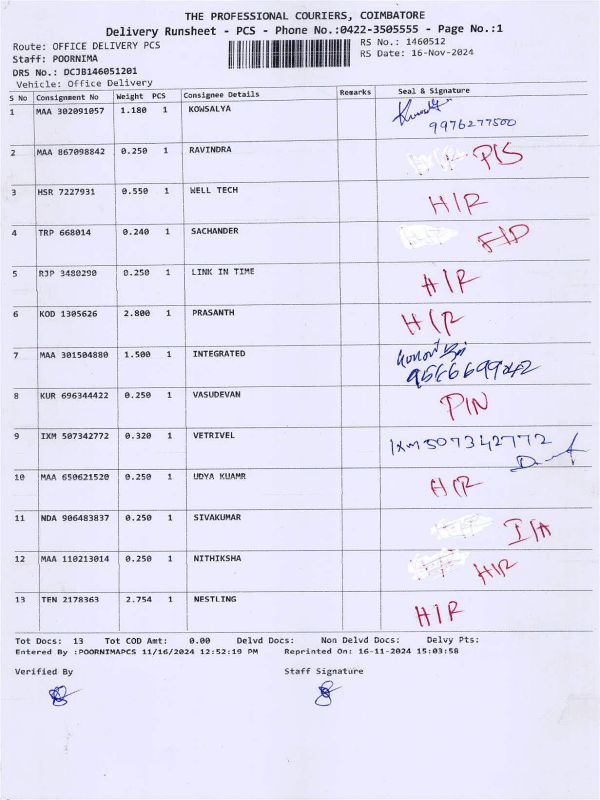 THE PROFESSIONAL COURIERS, COIMBATORE
Delivery Runsheet - PCS - Phone No.:0422-3505555 - Page No.:1
Route: OFFICE DELIVERY PCS RS No.: 1460512
Staff: POORNIMA RS Date: 16-Nov-2024
DRS No.: DCJB146051201
Vehicle: Office Delivery
S No Consignment No Weight PCS Consignee Details Remarks Seal & Signature
1 MAA 302091057 1.180 1 KOWSALYA
9976277500
2 MAA 867098842 0.250 1 RAVINDRA
3 HSR 7227931 0.550 1 WELL TECH H/R
4 TRP 668014 0.240 1 SACHANDER
5 RJP 3480290 0.250 1 LINK IN TIME H/R
6 KOD 1305626 2.800 1 PRASANTH H/R
7 MAA 301504880 1.500 1 INTEGRATED
8 KUR 696344422 0.250 1 VASUDEVAN PIN
9 IXM 507342772 0.320 1 VETRIVEL IXM507342772
10 MAA 650621520 0.250 1 UDYA KUAMR H/R
11 NDA 906483837 0.250 1 SIVAKUMAR
12 MAA 110213014 0.250 1 NITHIKSHA H/R
13 TEN 2178363 2.754 1 NESTLING H/R
Tot Docs: 13 Tot COD Amt: 0.00 Delvd Docs: Non Delvd Docs: Delvy Pts:
Entered By :POORNIMAPCS 11/16/2024 12:52:19 PM Reprinted On: 16-11-2024 15:03:58
Verified By Staff Signature